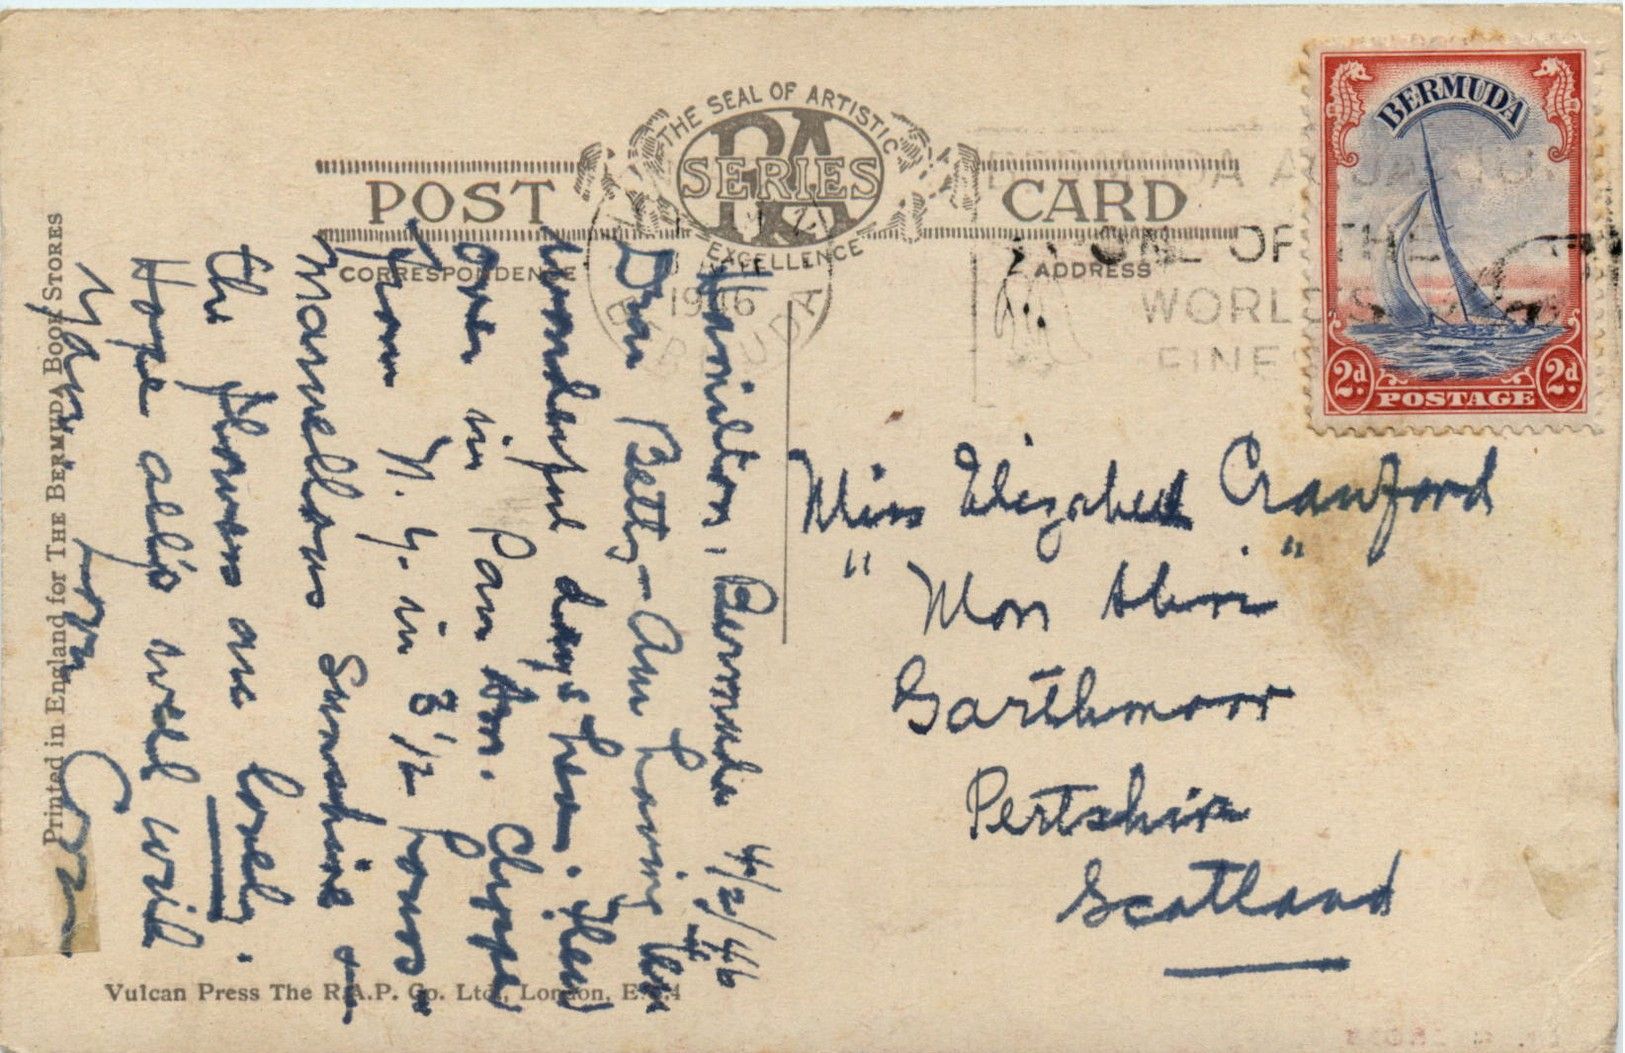 THE SEAL OF ARTISTIC
RA
SERIES
EXCELLENCE
POST CARD
CORRESPONDENCE
ADDRESS
BERMUDA
2d. POSTAGE 2d.
ONE OF THE
WORLD'S
FINE
1946
BERMUDA
Hamilton, Bermuda 4/2/46
Dear Betty-Ann Having the
wonderful days here. Flew
over in Pan Am. Clipper
from N.Y. in 3 1/2 hours -
Marvellous sunshine &
the flowers are lovely.
Hope all's well with
you. Love
Miss Elizabeth Crawford
"Mon Abri"
Garthmoor
Pertshire
Scotland
Printed in England for THE BERMUDA BOOK STORES
Vulcan Press The R.A.P. Co. Ltd., London, E.C.4